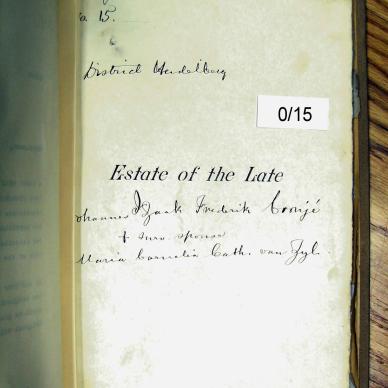 No. 15.
District Heidelberg
0/15
Estate of the Late
Johannes Izaak Frederik Cronjé
& surv. spouse
Maria Cornelia Cath. van Zyl.